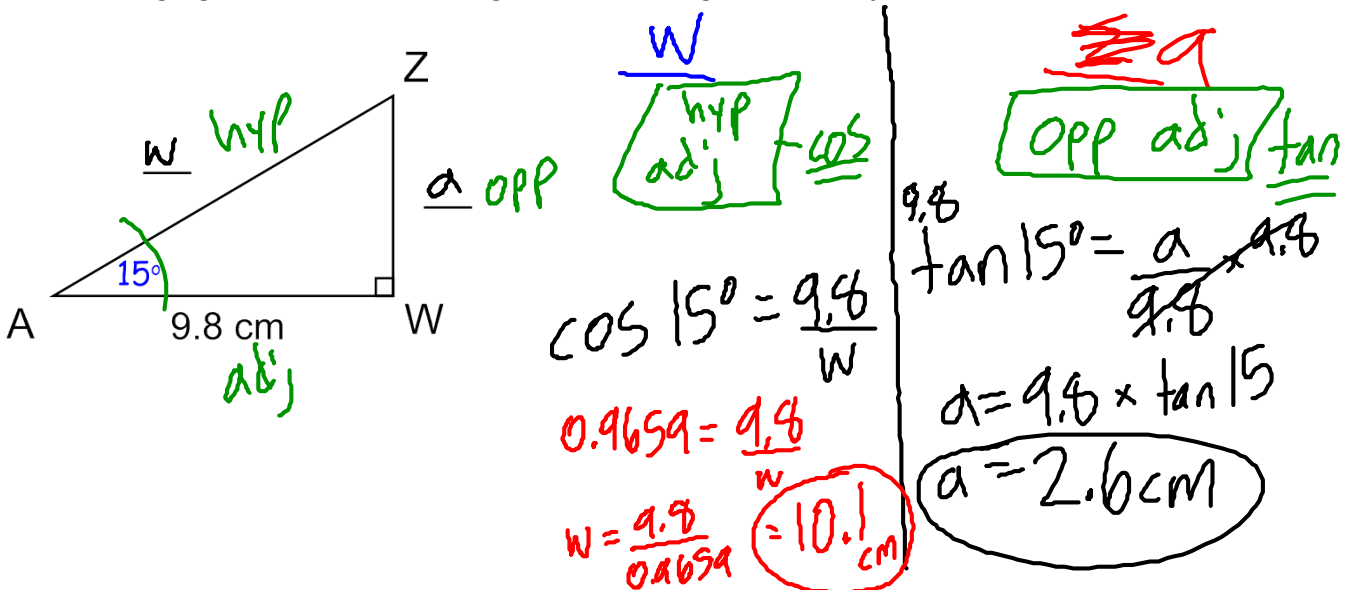 Z
w hyp
a opp
15°
A
9.8 cm
W
adj
w
hyp
adj
cos
cos 15° = 9.8/w
0.9659 = 9.8/w
w = 9.8/0.9659 = 10.1 cm
a
opp adj tan
9.8
tan 15° = a/9.8 × 9.8
a = 9.8 × tan 15
a = 2.6cm